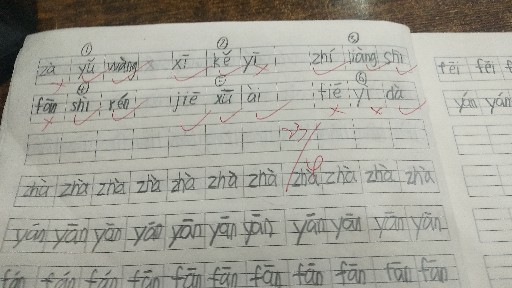 ① ② ③
zà yǔ wàng xī kě yī zhí liàng shì
④ ⑤ ⑥
fān shì rén jiē xūi ài tiē yì dà
zhà zhà zhà zhà zhà zhà zhà zhà zhà zhà zhà
yán yān yān yān yān yān yān yān yān yān yān
fán fán fán fān fān fān fān fān fān fān fān
fēi fēi
yán yán